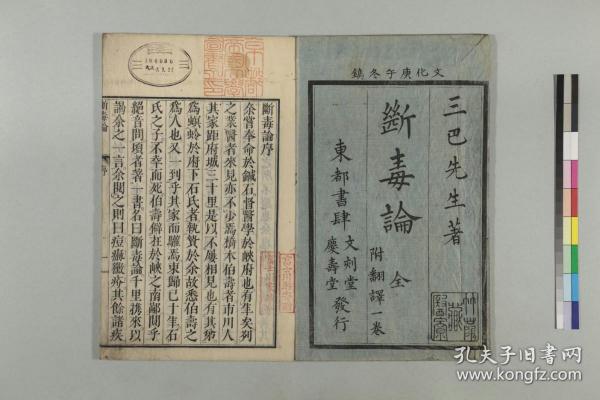 文化庚午冬鐫
三巴先生著
斷毒論 全
附翻譯一卷
東都書肆 文刻堂 慶壽堂 發行
斷毒論序
余嘗奉命於鍼石督醫學於峽府也有年矣列
之業醫者來見亦不少焉橋本伯壽者市川人
其家距府城三十里是以不屢相見也有其
為螟蛉於府下石氏者執贄於余故悉伯壽之
為人也又一到乎其家而驩焉東歸已十年石
氏之子不幸而死伯壽僻在於峽之南鄙聞乎
絕音問頃者著一書名曰斷毒論千里携來以
謁余之一言余閱之則曰痘痲黴疥其餘諸疾
斷毒論
序
孔夫子旧书网
www.kongfz.com